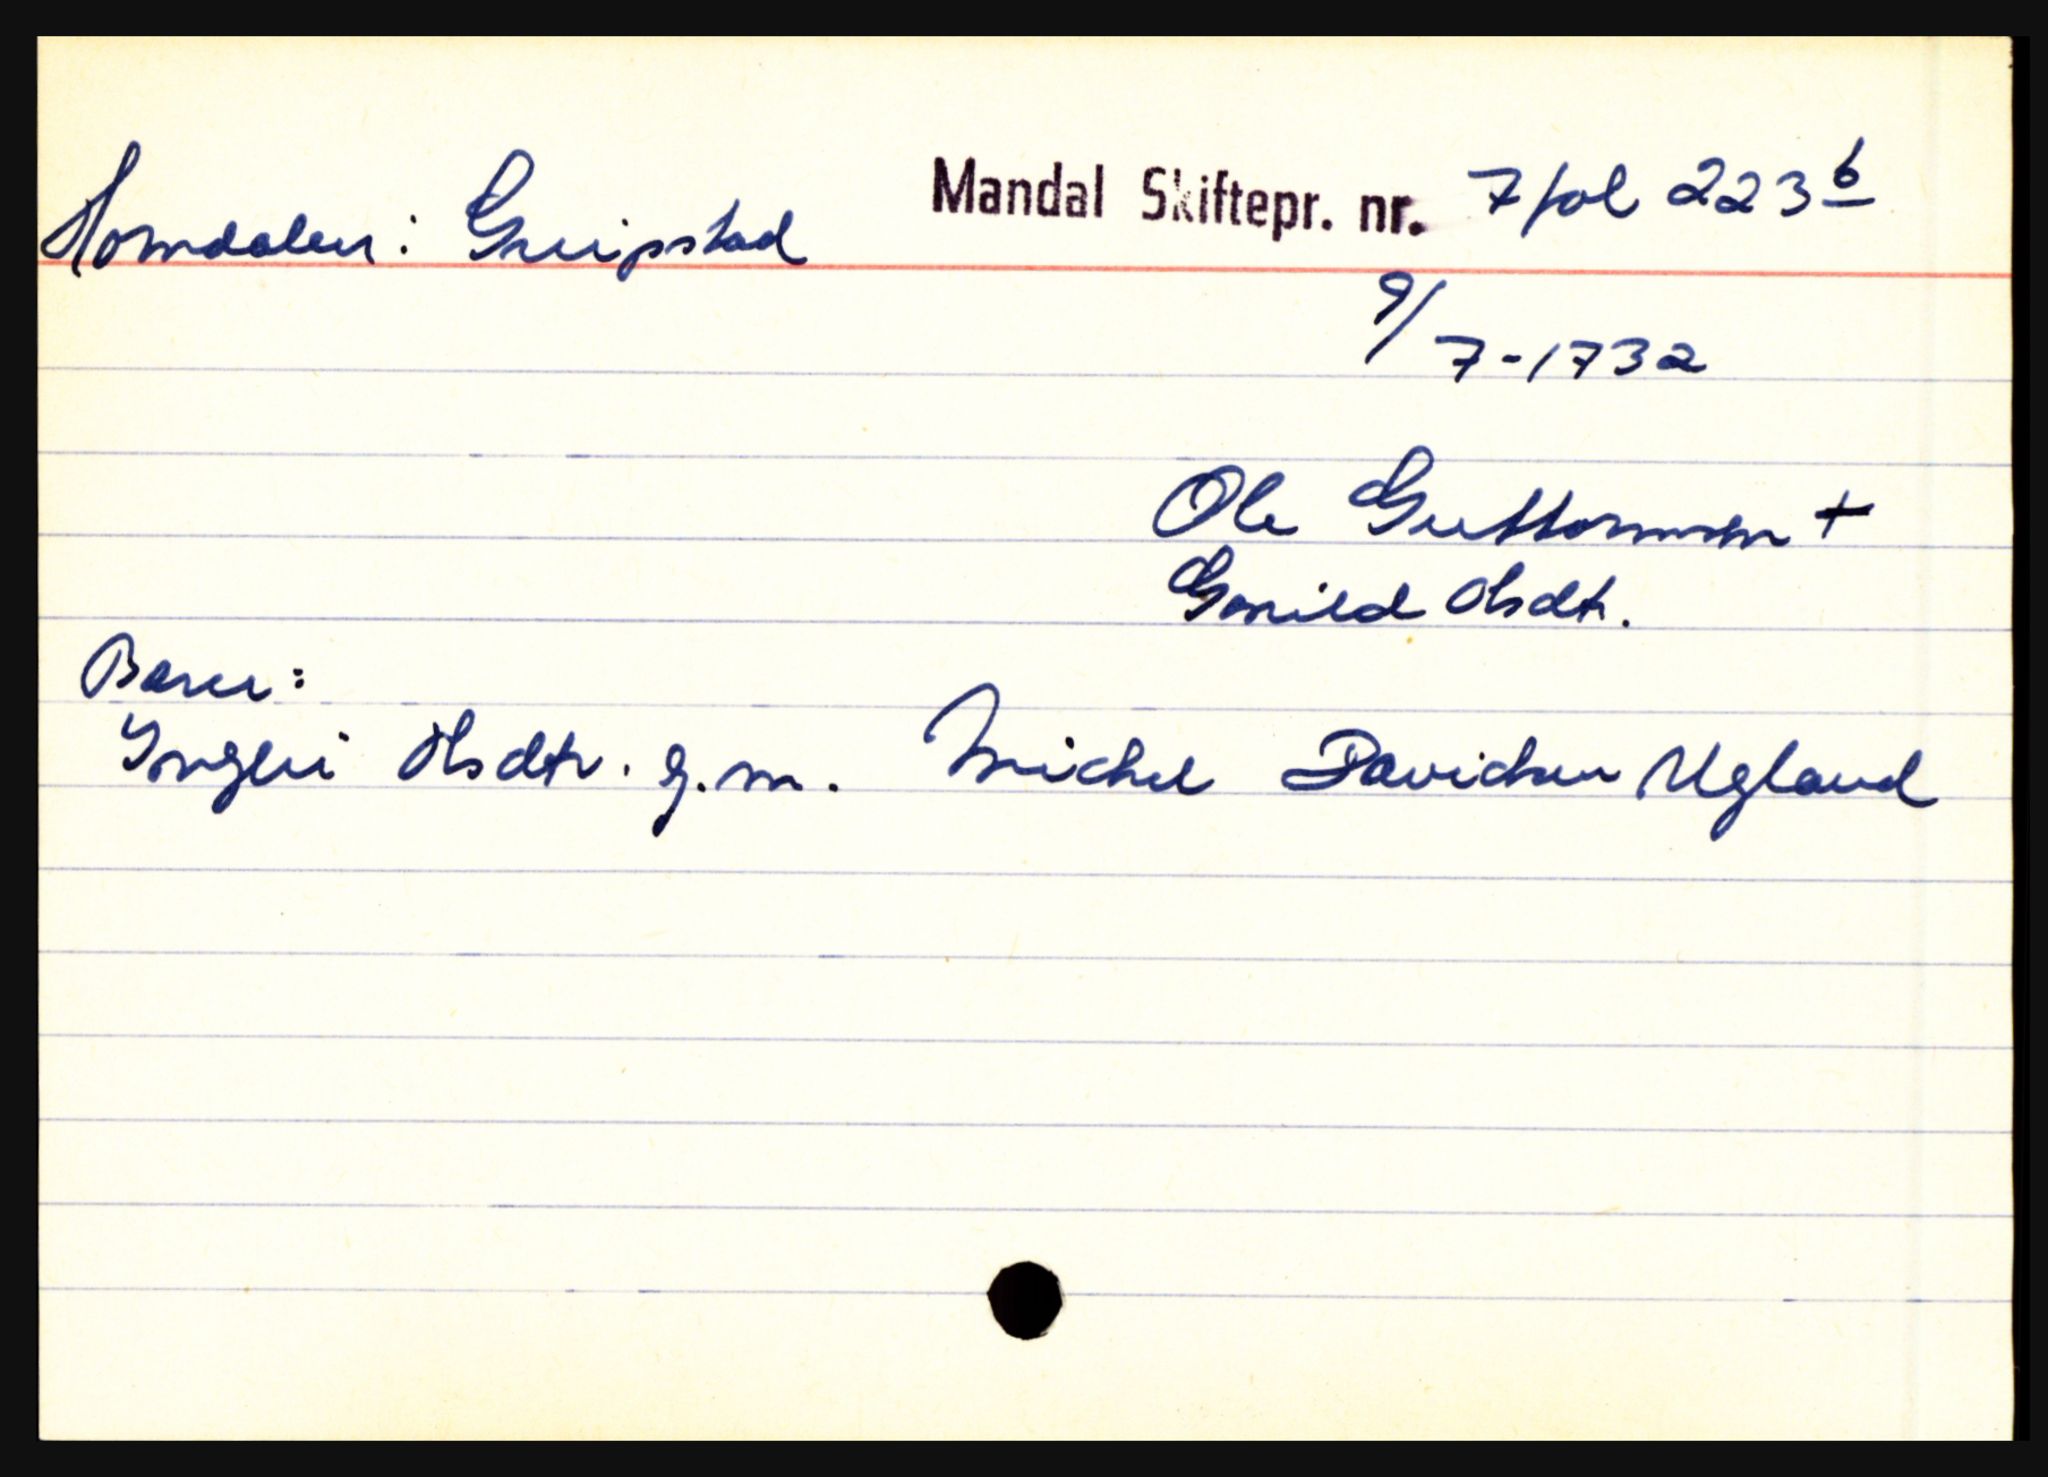 Homdalen: Greipstad Mandal Skiftepr. nr. 7 fol 223 b
9/7-1732
Ole Guttormsen +
Gonild Olsdtr.
Barn:
Olsdtr. g.m. Michel Davidsen Ugland